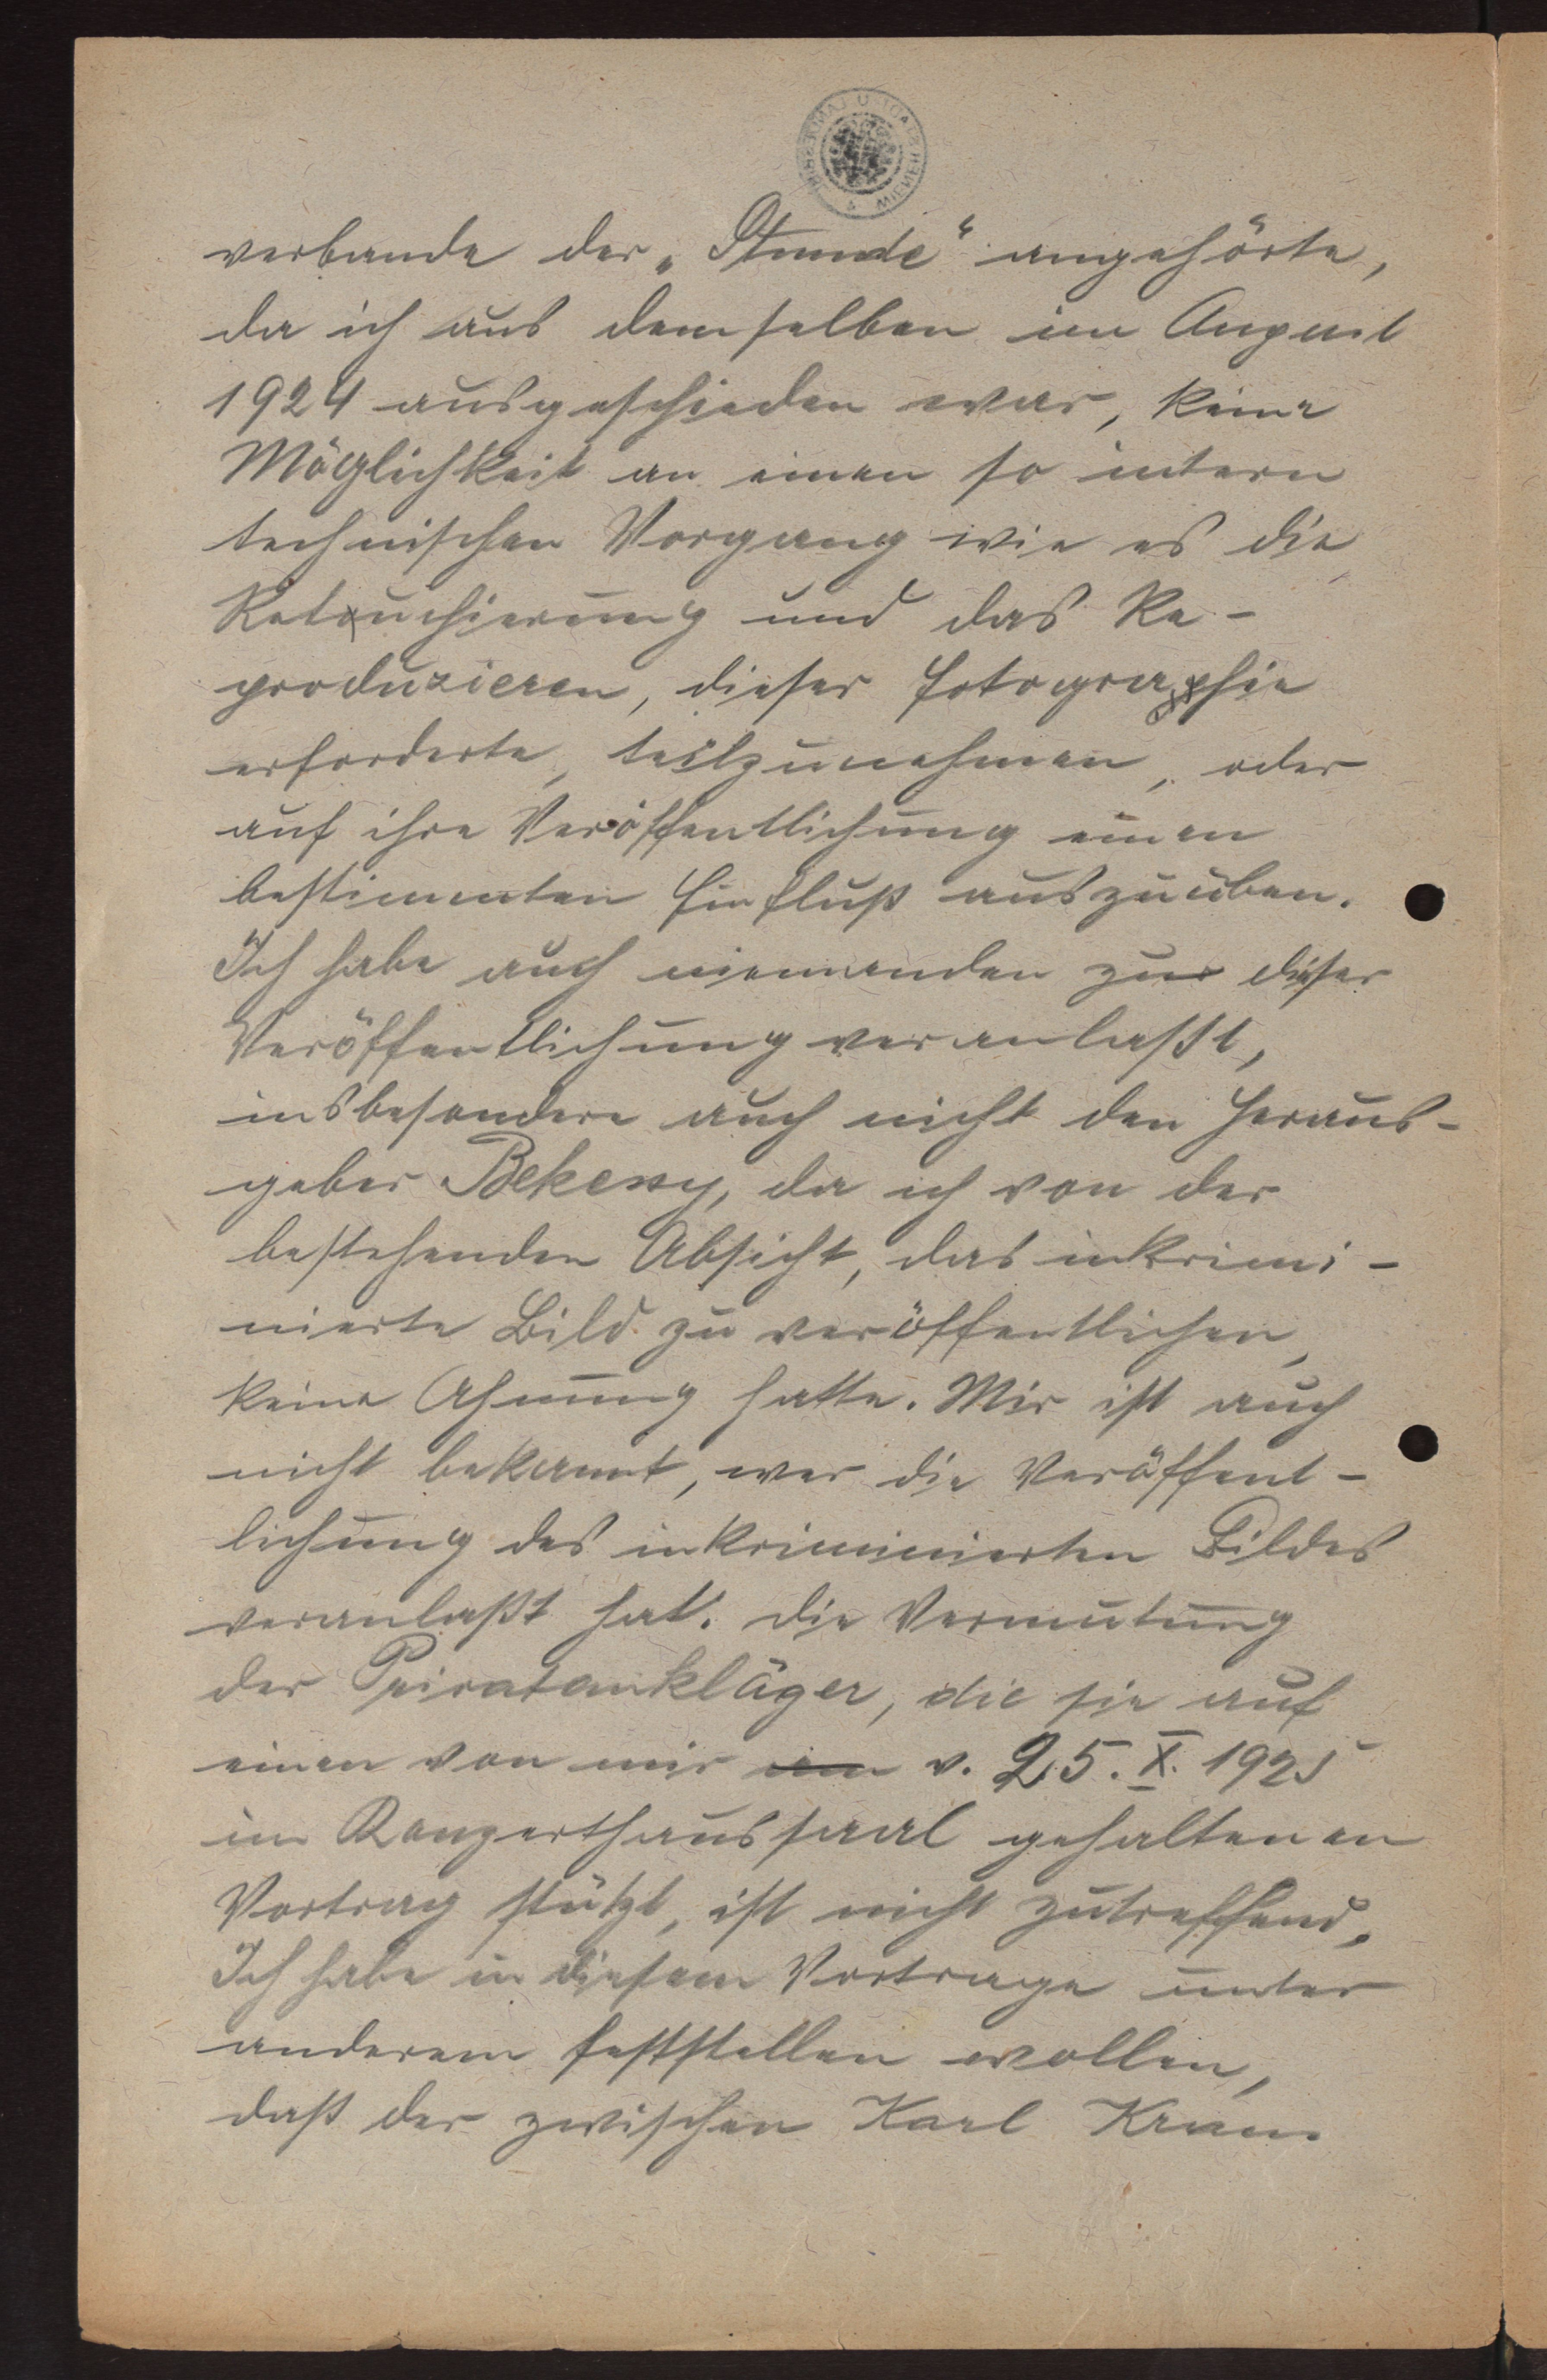 verbande der „Stunde" angehörte,
da ich aus demselben im August
1924 ausgeschieden war, keine
Möglichkeit an einen so intern
technischen Vorgang wie es die
Retouchierung und das Re-
produzieren, dieser Fotographie
erforderte, teilzunehmen, oder
auf ihre Veröffentlichung einen
bestimmten Einfluß auszuüben.
Ich habe auch niemanden zur dieser
Veröffentlichung veranlaßt,
insbesondere auch nicht den Heraus-
geber Bekessy, da ich von der
bestehenden Absicht, das inkrimi-
nierte Bild zu veröffentlichen,
keine Ahnung hatte. Mir ist auch
nicht bekannt, wer die Veröffent-
lichung des inkriminierten Bildes
veranlaßt hat. Die Vermutung
der Privatankläger, die sie auf
einen von mir am v. 25. X. 1925
im Konzerthaussaal gehaltenen
Vortrag stützt, ist nicht zutreffend.
Ich habe in diesem Vortrage unter
anderem feststellen wollen,
daß der zwischen Karl Kraus